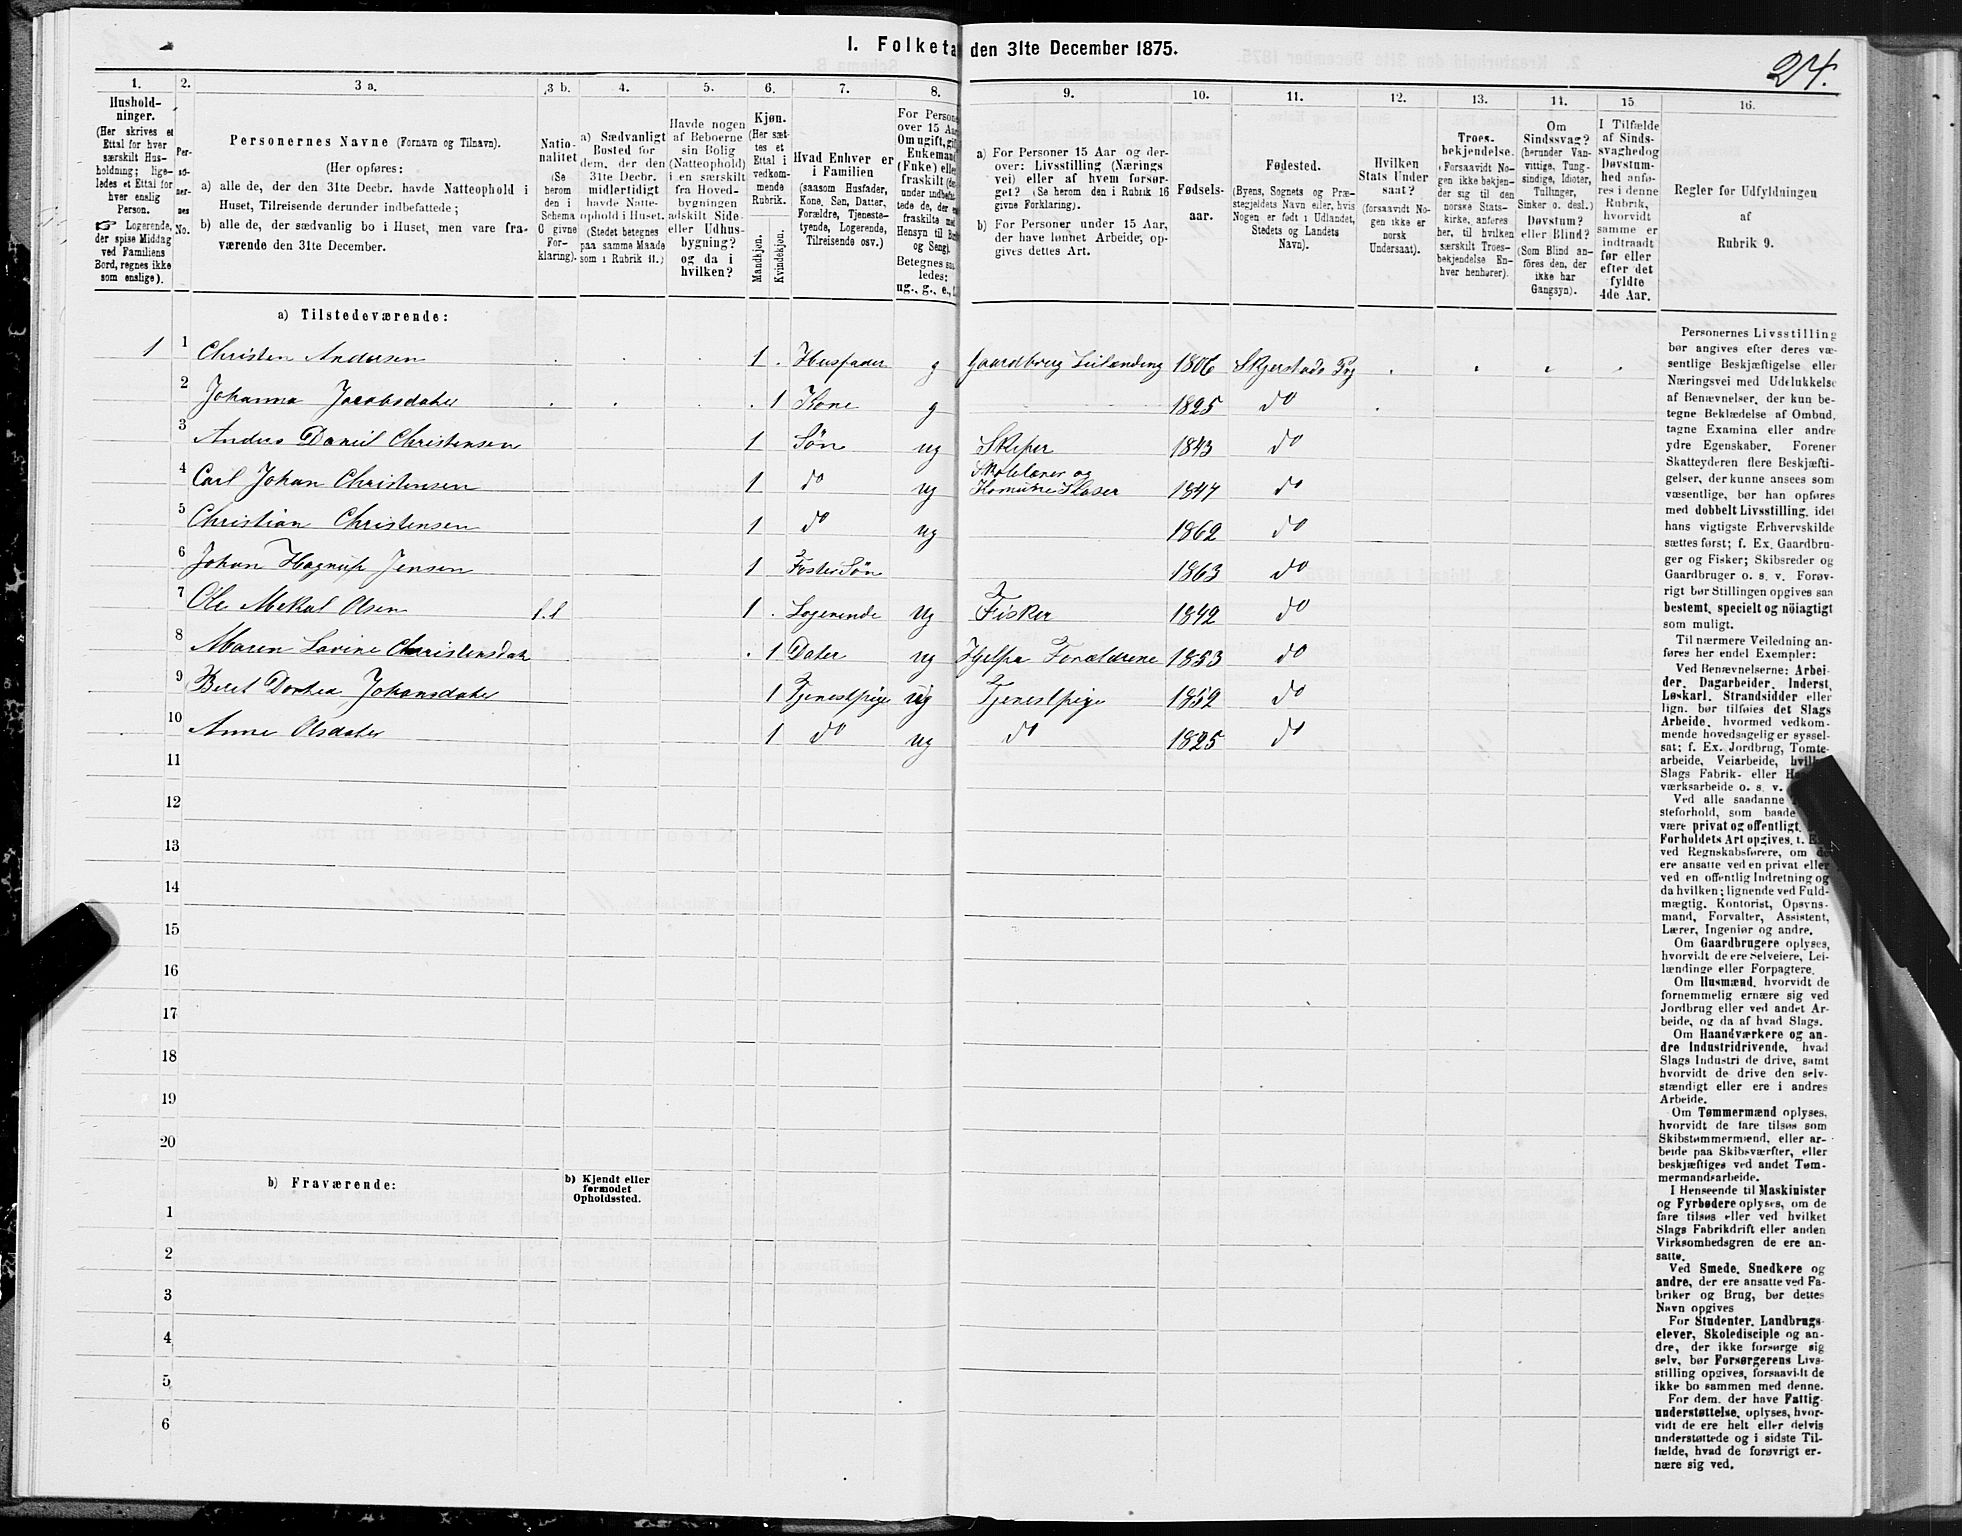 I. Folketa den 31te December 1875.
24.
1.
2.
3 a.
3 b.
4.
5.
6.
7.
8.
9.
10.
11.
12.
13.
14.
15
16.
Hushold-
ninger.
(Her skrives et
Ettal for hver
særskilt Hus-
holdning; lige-
ledes et Ettal for
hver enslig
Person.
☞ Logerende,
der spise Middag
ved Familiens
Bord, regnes ikke
som enslige).
Per-
so-
ner-
nes
No.
Personernes Navne (Fornavn og Tilnavn).
(Her opføres:
a) alle de, der den 31te Decbr. havde Natteophold i
Huset, Tilreisende derunder indbefattede;
b) alle de, der sædvanlig bo i Huset, men vare fra-
værende den 31te December.
Natio-
nalitet
(Se
herom
den i
Schema
C givne
For-
klaring).
a) Sædvanligt
Bosted for
dem, der den
31te Decbr.
midlertidigt
havde Natte-
ophold i Huset.
(Stedet betegnes
paa samme Maade
som i Rubrik 11.)
Havde nogen
af Beboerne
sin Bolig
(Natteophold)
i en særskilt
fra Hoved-
bygningen
adskilt Side-
eller Udhus-
bygning?
og da i
hvilken?
Kjøn.
(Her sæt-
tes et
Ettal i
vedkom-
mende
Rubrik.
Mandkjøn.
Kvindekjøn.
Hvad Enhver er
i Familien
(saasom Husfader,
Kone, Søn, Datter,
Forældre, Tjeneste-
tyende, Logerende,
Tilreisende osv.)
For Persone
over 15 Aa
Om ugift, gif
Enkeman
(Enke) elle
fraskilt (de
under indbefat
tede de, der e
fraskilte med
Hensyn til Bo
og Seng).
Betegnes saa
ledes:
ug., g., e., f.
a) For Personer 15 Aar og der-
over: Livsstilling (Nærings
vei) eller af hvem forsør-
get? (Se herom den i Rubrik 16
givne Forklaring).
b) For Personer under 15 Aar,
der have lønnet Arbeide, op-
gives dettes Art.
Fødsels-
aar.
Fødested.
(Byens, Sognets og Præ-
stegjeldets Navn eller, hvis
Nogen er født i Udlandet,
Stedets og Landets
Navn).
Hvilken
Stats Under
saat?
(forsaavidt No-
gen ikke er
norsk
Undersaat).
Troes-
bekjendelse.
(Forsaavidt No-
gen ikke bekjen-
der sig til den
norske Stats-
kirke, anføres
her, til hvilken
særskilt Troes-
bekjendelse En-
hver henhører).
Om
Sindssvag?
(herunder Van-
vittige, Tung-
sindige, Idioter,
Tullinger,
Sinker o. desl.)
Døvstum?
eller Blind?
(Som Blind an-
føres den, der
ikke har
Gangsyn).
I Tilfælde
af Sinds-
svaghed og
Døvstum-
hed anfø-
res i denne
Rubrik,
hvorvidt
samme er
indtraadt
før eller
efter det
fyldte
4de Aar.
Regler for Udfyldningen
af
Rubrik 9.
a) Tilstedeværende:
1 1 Christen Andersen 1 Husfader g Gaardbrug Leilænding 1806 Skjerstads Prg
2 Johanna Jacobsdater 1 Kone g 1825 do
3 Anders Daniel Christensen 1 Søn ug Skiper 1843 do
4 Carl Johan Christensen 1 do ug Skolelærer og Komune Kaser 1847 do
5 Christian Christensen 1 do ug 1862 do
6 Johan Hagrup Jensen 1 Foster Søn 1863 do
7 Ole Mekal Olsen l.l 1 Logerende ug Fisker 1842 do
8 Maren Lovine Christensdat 1 Dater ug Hjelper Forældrene 1853 do
9 Beret Dortea Johansdater 1 Tjenestpige ug Tjenestpige 1852 do
10 Anne Olsdater 1 do ug do 1825 do
11
12
13
14
15
16
17
18
19
20
b) Fraværende:
b) Kjendt eller
formodet
Opholdssted.
1
2
3
4
5
6
Personernes Livsstilling
bør angives efter deres væ-
sentlige Beskjæftigelse eller
Næringsvei med Udelukkelse
af Benævnelser, der kun be-
tegne Beklædelse af Ombud,
tagne Examina eller andre
ydre Egenskaber. Forener
Skatteyderen flere Beskjæfti-
gelser, der kunne ansees som
væsentlige, bør han opføres
med dobbelt Livsstilling, idet
hans vigtigste Erhvervskilde
sættes først; f. Ex. Gaardbru-
ger og Fisker; Skibsreder og
Gaardbruger o. s. v. Forøv-
rigt bør Stillingen opgives saa
bestemt, specielt og nøiagtigt
som muligt.
Til nærmere Veiledning an-
føres her endel Exempler:
Ved Benævnelserne: Arbei-
der, Dagarbeider, Inderst,
Løskarl, Strandsidder eller
lign. bør tilføies det Slags
Arbeide, hvormed vedkom-
mende hovedsagelig er syssel-
sat; f. Ex. Jordbrug, Tomte-
arbeide, Veiarbeide, hvilket
Slags Fabrik- eller Ha
værksarbeide o. s. v.
Ved alle saadanne
steforhold, som baade
være privat og offentligt,
Forholdets Art opgives, t. E
ved Regnskabsførere, om de
ere ansatte ved en privat eller
ved en offentlig Indretning og
da hvilken; lignende ved Fuld-
mægtig, Kontorist, Opsyns-
mand, Forvalter, Assistent,
Lærer, Ingeniør og andre.
Om Gaardbrugere oplyses,
hvorvidt de ere Selveiere, Lei-
lændinge eller Forpagtere.
Om Husmænd, hvorvidt de
fornemmelig ernære sig ved
Jordbrug eller ved andet Ar-
beide, og da af hvad Slags.
Om Haandværkere og an-
dre Industridrivende, hvad
Slags Industri de drive, samt
hvorvidt de drive den selv-
stændigt eller ere i andres
Arbeide.
Om Tømmermænd oplyses,
hvorvidt de fare tilsøs som
Skibstømmermænd, eller ar-
beide paa Skibsværfter, eller
beskjæftiges ved andet Tøm-
mermandsarbeide.
I Henseende til Maskinister
og Fyrbødere oplyses, om de
fare tilsøs eller ved hvilket
Slags Fabrikdrift eller anden
Virksomhedsgren de ere an-
satte.
Ved Smede, Snedkere og
andre, der ere ansatte ved Fa-
briker og Brug, bør dettes
Navn opgives
For Studenter, Landbrugs-
elever, Skoledisciple og an-
dre, der ikke forsørge sig
selv, bør Forsørgerens Livs-
stilling opgives, forsaavidt de
ikke bo sammen med denne.
For dem, der have Fattig-
understøttelse, oplyses, hvor-
vidt de ere helt eller delvis
understøttede og i sidste Til-
fælde, hvad de forøvrigt er-
nære sig ved.